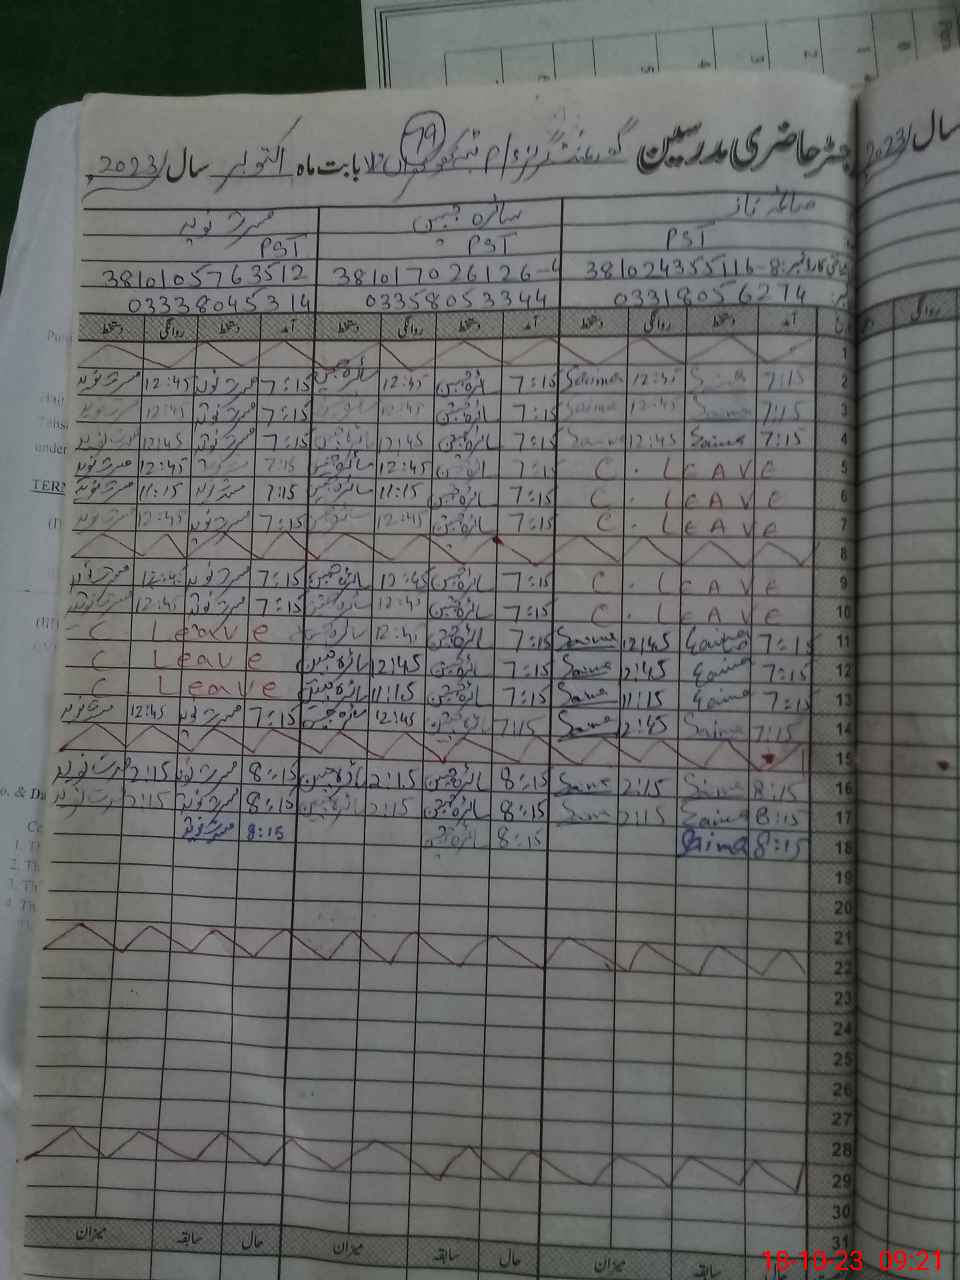 رجسٹر حاضری مدرسین گورنمنٹ گرلز بابت ماہ اکتوبر سال 2023
19
سال 2023
صائمہ ناز سائرہ جبیں مسرت نوید
PST PST PST
شناختی کارڈ نمبر: 381024355116-8 381017026126-4 3810105763512
03318056274 03358053344 03338045314
آمد دستخط روانگی دستخط آمد دستخط روانگی دستخط آمد دستخط روانگی دستخط
1
2 7:15 Saima 12:45 Saima 7:15 سائرہ جبیں 12:45 سائرہ جبیں 7:15 مسرت نوید 12:45 مسرت نوید
3 7:15 Saima 12:45 Saima 7:15 سائرہ جبیں 12:45 سائرہ جبیں 7:15 مسرت نوید 12:45 مسرت نوید
4 7:15 Saima 12:45 Saima 7:15 سائرہ جبیں 12:45 سائرہ جبیں 7:15 مسرت نوید 12:45 مسرت نوید
5 C. LEAVE 7:15 سائرہ جبیں 12:45 سائرہ جبیں 7:15 مسرت نوید 12:45 مسرت نوید
6 C. LEAVE 7:15 سائرہ جبیں 11:15 سائرہ جبیں 7:15 مسرت نوید 11:15 مسرت نوید
7 C. LEAVE 7:15 سائرہ جبیں 12:45 سائرہ جبیں 7:15 مسرت نوید 12:45 مسرت نوید
8
9 C. LEAVE 7:15 سائرہ جبیں 12:45 سائرہ جبیں 7:15 مسرت نوید 12:45 مسرت نوید
10 C. LEAVE 7:15 سائرہ جبیں 12:45 سائرہ جبیں 7:15 مسرت نوید 12:45 مسرت نوید
11 7:15 Saima 12:45 Saima 7:15 سائرہ جبیں 12:45 سائرہ جبیں C Leave
12 7:15 Saima 12:45 Saima 7:15 سائرہ جبیں 12:45 سائرہ جبیں C Leave
13 7:15 Saima 11:15 Saima 7:15 سائرہ جبیں 11:15 سائرہ جبیں C Leave
14 7:15 Saima 12:45 Saima 7:15 سائرہ جبیں 12:45 سائرہ جبیں 7:15 مسرت نوید 12:45 مسرت نوید
15
16 8:15 Saima 2:15 Saima 8:15 سائرہ جبیں 2:15 سائرہ جبیں 8:15 مسرت نوید 2:15 مسرت نوید
17 8:15 Saima 2:15 Saima 8:15 سائرہ جبیں 2:15 سائرہ جبیں 8:15 مسرت نوید 2:15 مسرت نوید
18 8:15 Saima 8:15 سائرہ جبیں 8:15 مسرت نوید
19
20
21
22
23
24
25
26
27
28
29
30
31
میزان سابقہ حال میزان سابقہ حال میزان سابقہ
18-10-23 09:21